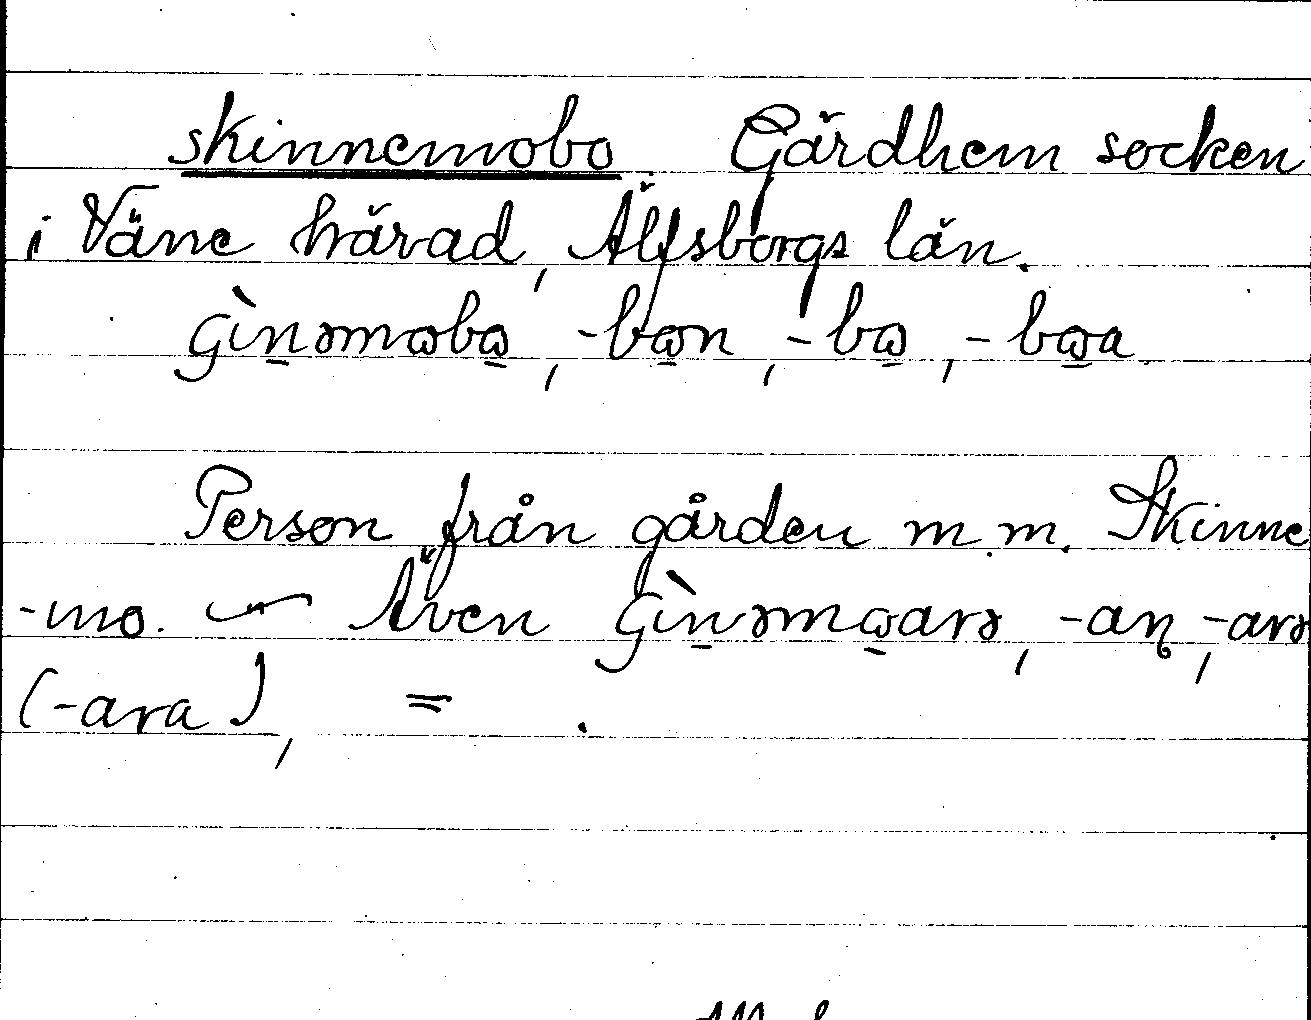 skinnemobo Gärdhem socken
i Väne härad, Älfsborgs län.
ʃìn̠əmωbω̠, -bω̠n, -bω̠, -bω̠a
Person från gården m.m. Skinne
-mo. ~ Även ʃìn̠əmω̠arə, -aɳ, -arə
(-ara), = .